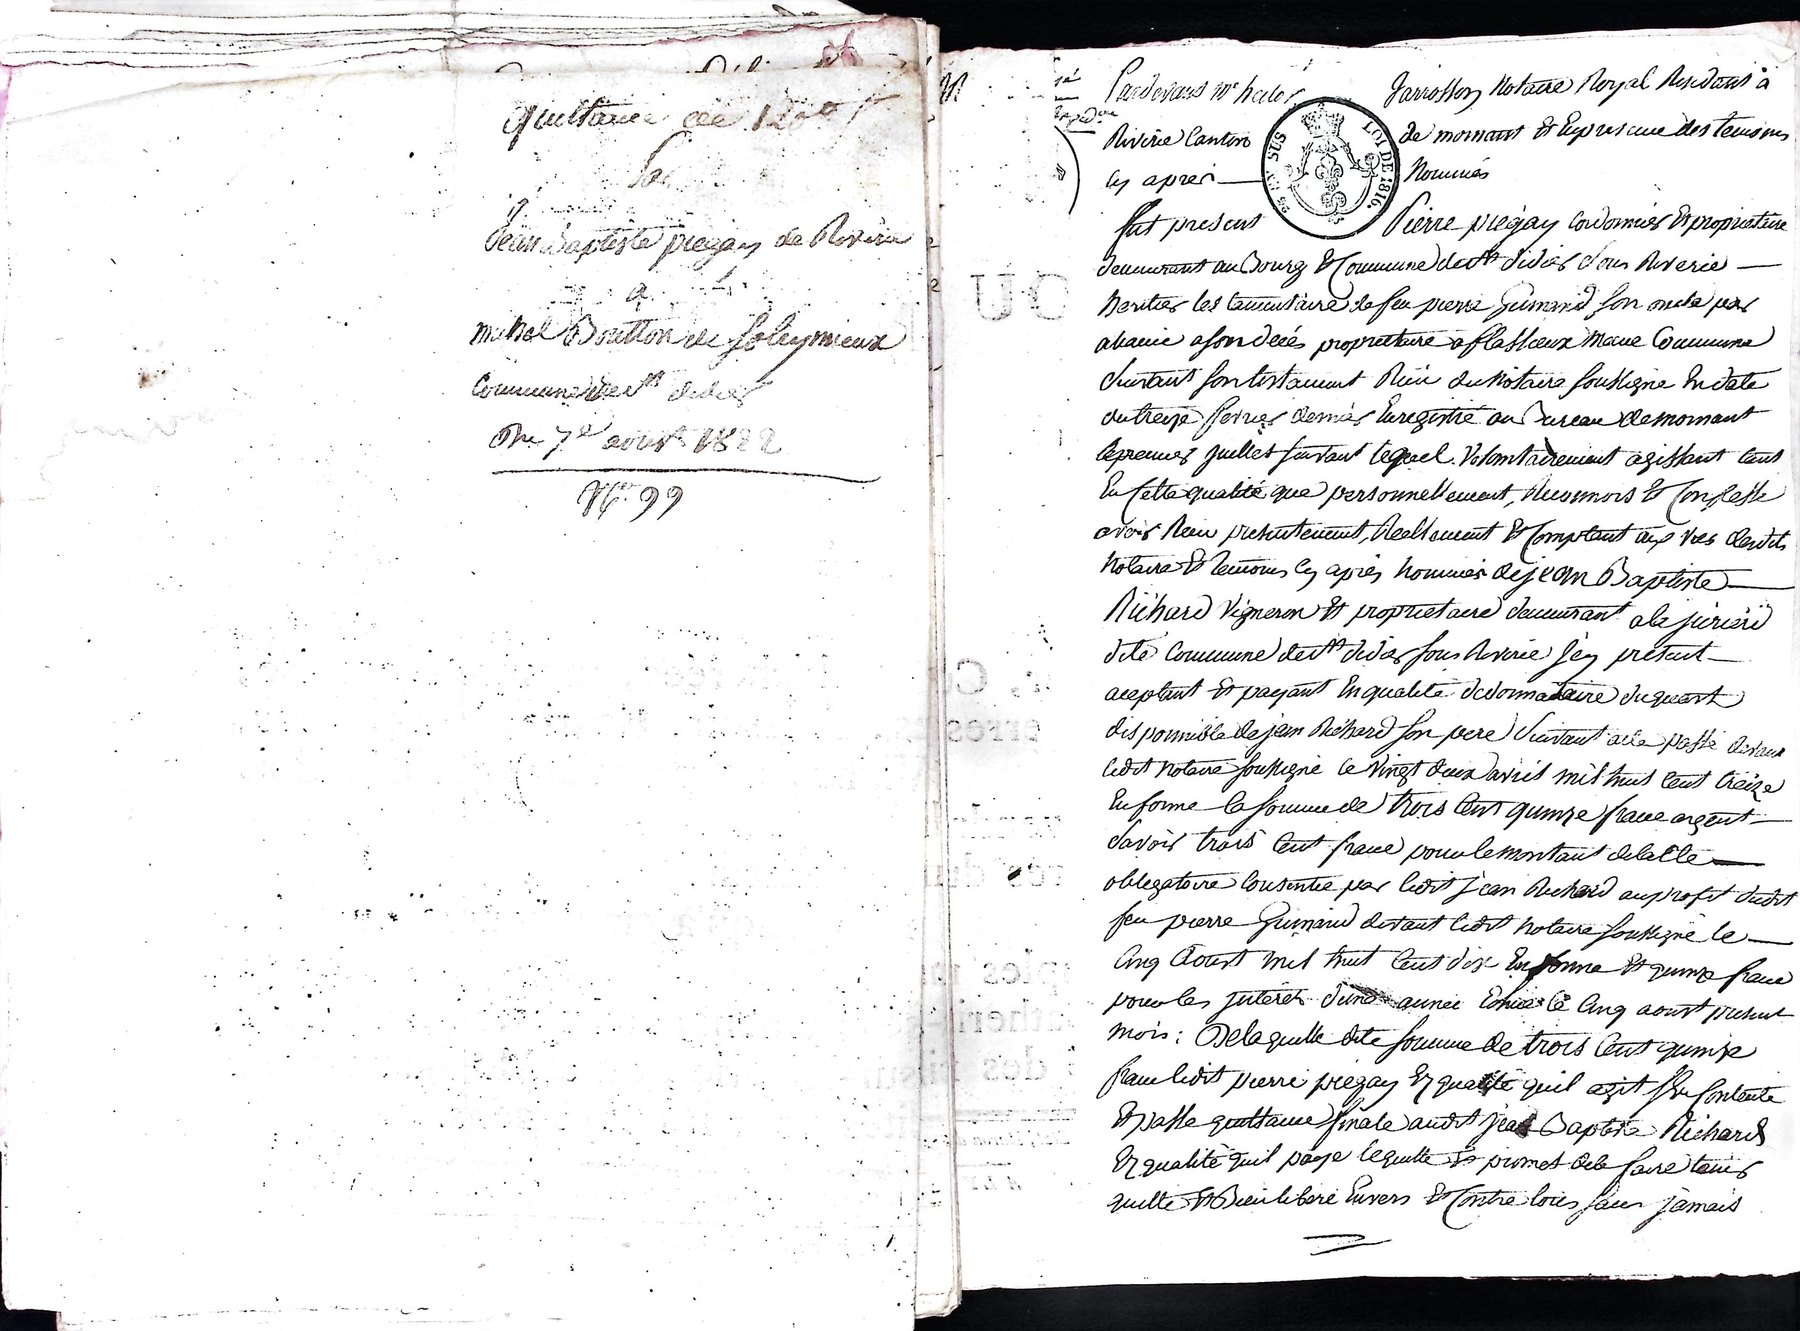 quittance de 1200 f
Par
Jean Baptiste piegay de Riverie
a
michel Boutton de Soleymieux
Commune de st didier
Du 7e aoust 1822
No. 99
Pardevant me
Jarrosson Notaire Royal Residant à
Riverie Canton de mornant Et En presence des temoins
Cy apres Nommés
25 EN SUS
LOI DE 1816.
fut present Pierre piegay Cordonnier Et propriétaire
demeurant au Bourg Et Commune de st didier sous Riverie
heritier testamentaire de feu pierre Guinand son oncle
a son décés propriettaire a flassieux meme Commune
suivant son testament Reçu du Notaire soussigné En date
du treize fevrier dernier Enregistré au Bureau de mornant
le premier juillet suivant lequel volontairement agissant tant
En Cette qualité que personnellement, Reconnois Et Confesse
avoir Recu presentement, Reellement Et Comptant aux vues desdits
Notaire Et temoins Cy après Nommés de jean Baptiste
Richard Vigneron Et proprietaire demeurant a la
dite Commune de st didier sous Riverie Icy présent
aceptant Et payant En qualité de donnataire du quart
disponnible de jean Richard son pere suivant acte passé devant
ledit Notaire soussigné le Vingt deux avril mil huit Cent treize
En forme la somme de trois Cent quinze franc argent
savoir trois Cent franc pour le montant de l'acte
obligatoire Consentie par ledit jean Richard au profit dudit
feu pierre Guinand devant ledit Notaire soussigné le
Cinq Aoust mil huit Cent dix En forme Et quinze franc
pour les jnterêt d'une année Echue le Cinq aoust present
mois: De laquelle dite somme de trois Cent quinze
franc ledit pierre piegay En qualité quil agit Se Contente
Et passe quittance finale audit jean Baptiste Richard
En qualité quil paye le quitte Et promet de le faire tenir
quitte Et Bien liberé Envers Et Contre tous sans jamais